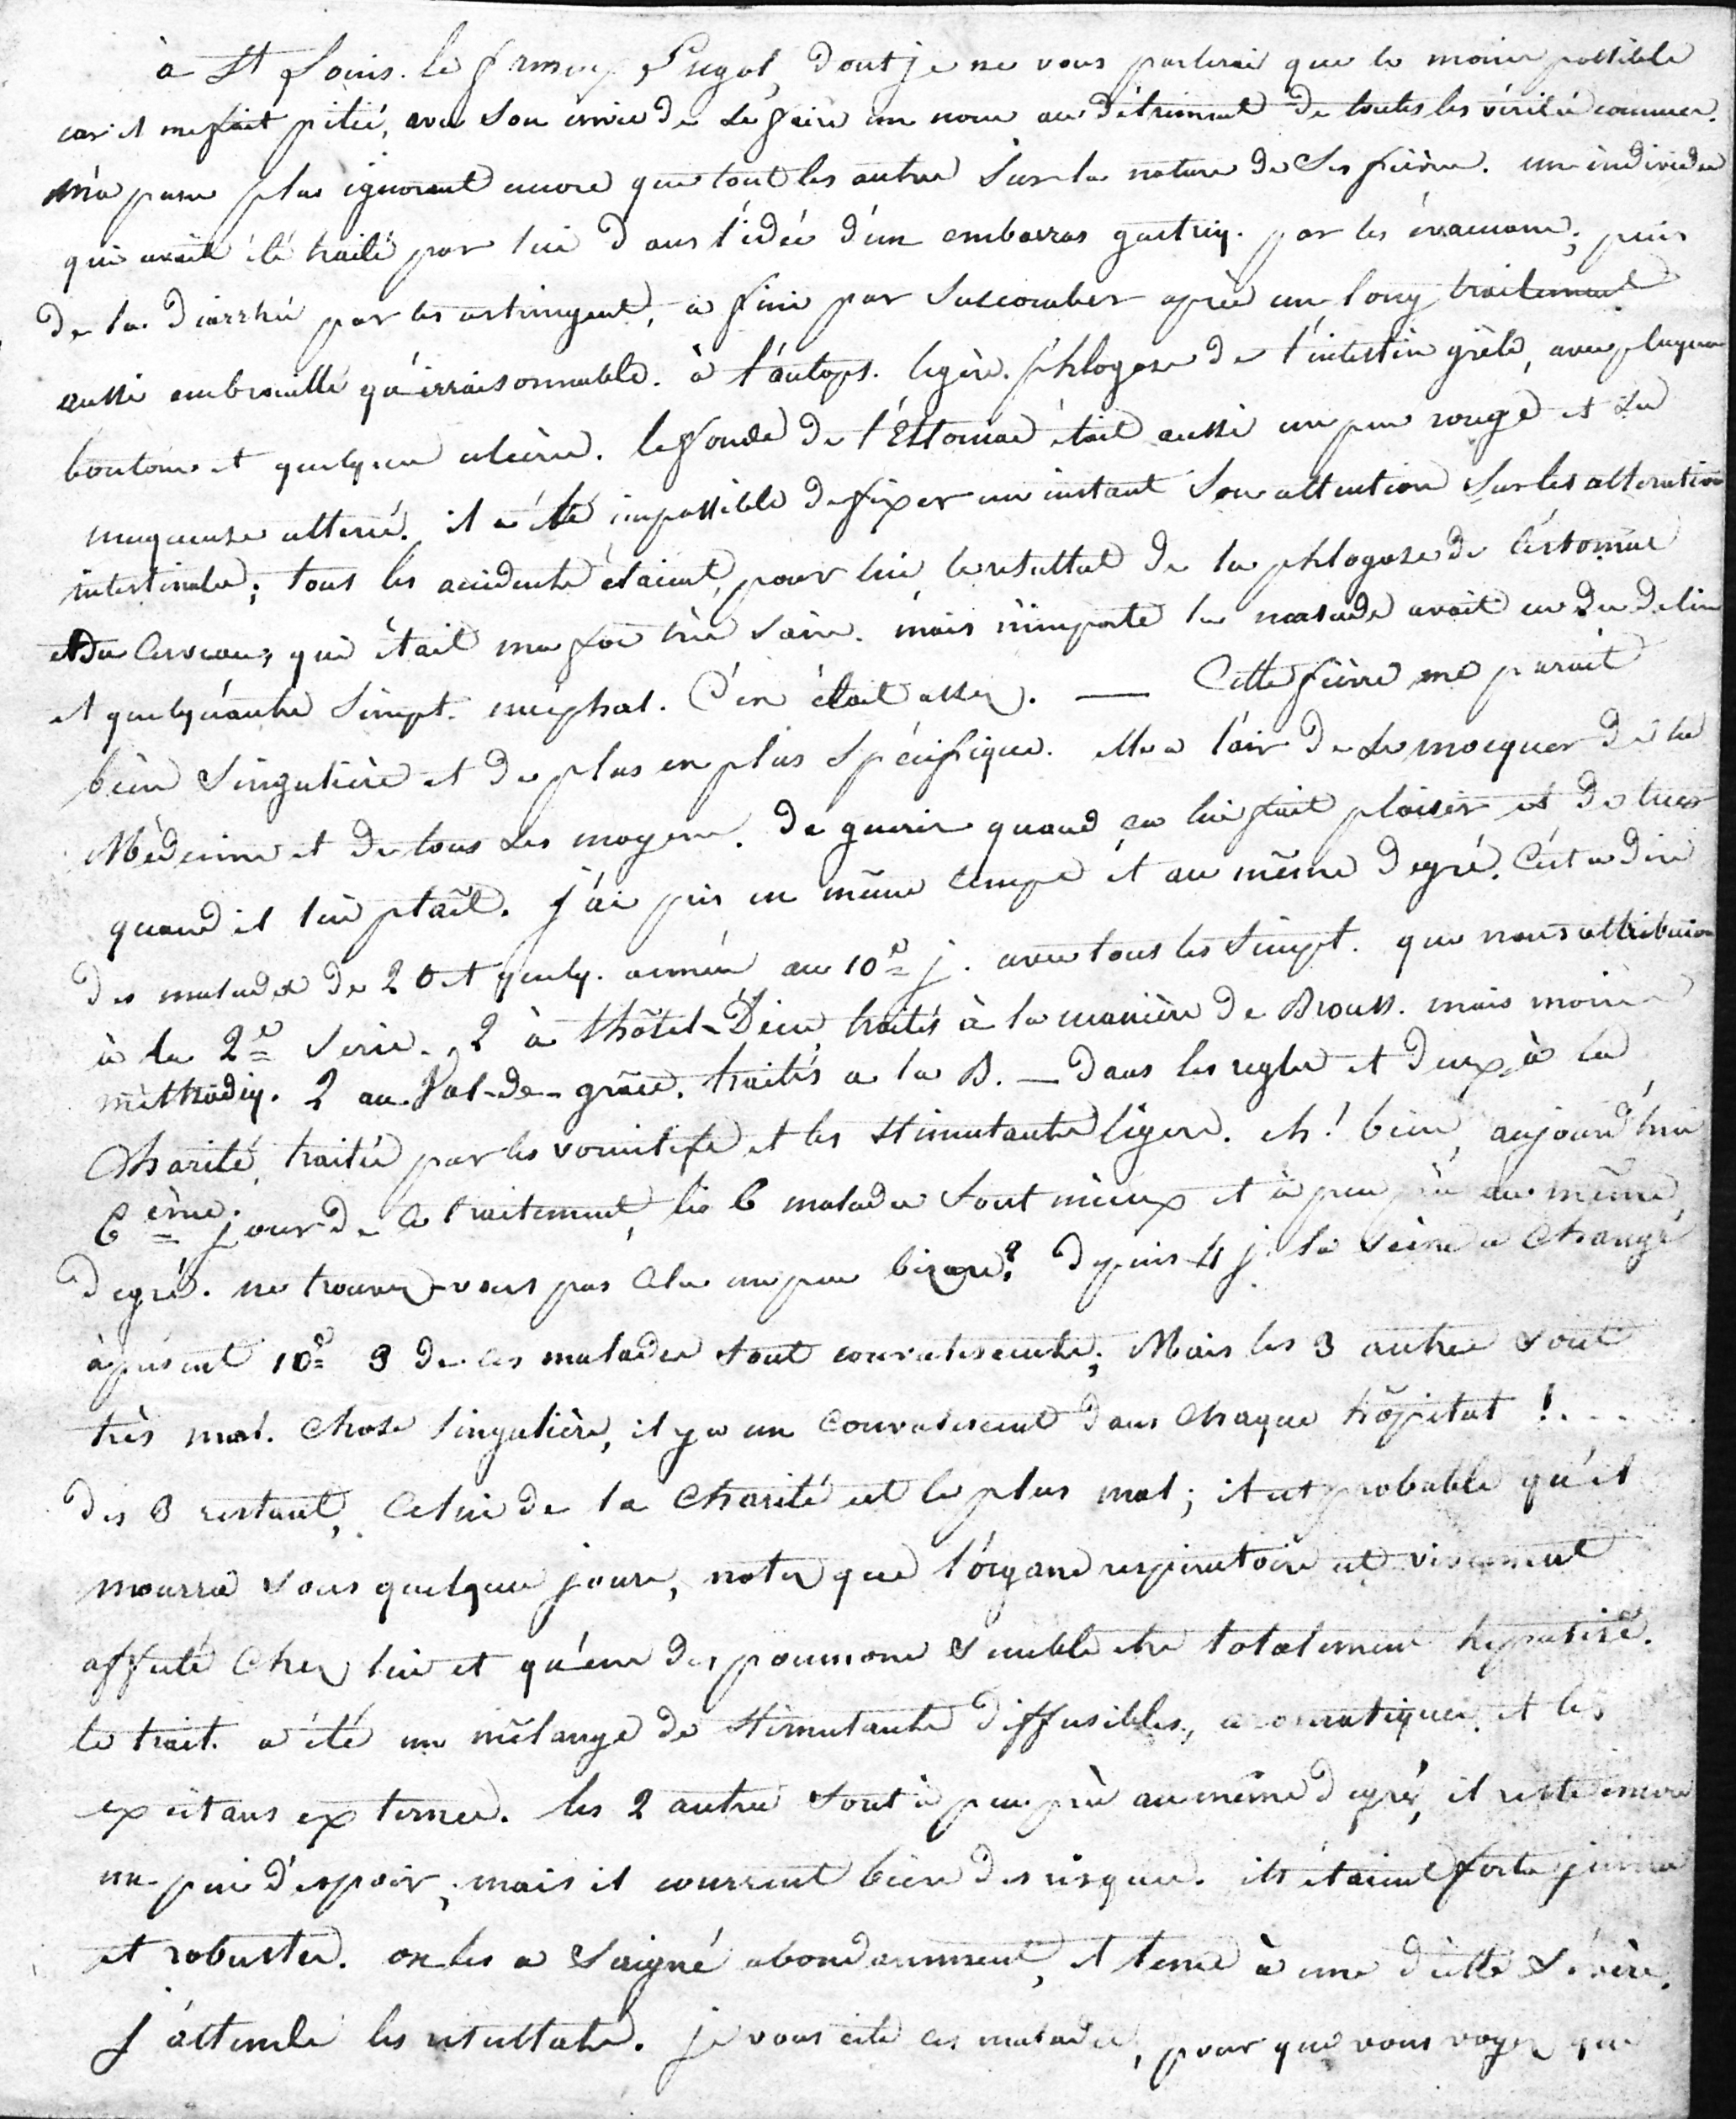 à St Louis. le fameux Lugol, dont je ne vous parlerai que le moins possible
car il me fait pitié, avec son envie de se faire un nom au détriment de toutes les vérités connues.
m'a paru plus ignorant encore que tout les autres sur la nature de ses fièvres. un individu
qui avait été traité par lui dans l'idée d'un embarras gastriq. par les évacuans; puis
de la diarrhée par les astringents, a fini par succomber après un long traitement
aussi embrouillé qu'irraisonnable. à l'autops. légère phlogose de l'intestin grèle, avec plaques
boutons et quelques ulcères. le fond de l'Estomac était aussi un peu rouge et sa
muqueuse alterée. il a été impossible de fixer un instant son attention sur les alterations
intestinales; tous les accidents étaient, pour lui le resultat de la phlogose de l'estomac
et du Cerveau, qui était ma foi très sain. mais n'importe le malade avait eu du delire
et quelqu'autres simpt. encéphal. C'en était assez. — Cette fièvre me parait
bien singulière et de plus en plus spécifique. elle a l'air de se mocquer de la
Médecine et de tous ses moyens. de guerir quand ça lui fait plaisir et de tuer
quand il lui plaît. j'ai pris en même temps et au même degré. C'est a dire
des malades de 20 et quelq. années au 10e j. avec tous les simpt. que nous attribuions
à la 2e serie. 2 à l'hôtel-Dieu, traités à la manière de Brouss. mais moins
méthodiq. 2 au Val-de-grâce. traités a la B. — dans les regles et deux à la
Charité, traités par les vomitifs et les stimulants légers. eh! bien, aujourd'hui
6ème. jour de ce traitement, les 6 malades sont mieux et à peu près au même
degré. ne trouvez-vous pas cela un peu bizare? depuis 4 j. la scène a changé
à présent 10e 3 de ces malades sont convalescents; Mais les 3 autres sont
très mal. chose singulière, il y a un convalescent dans chaque hôpital !....
des 3 restant, celui de la Charité est le plus mal; il est probable qu'il
mourra sous quelques jours, notez que l'organe respiratoire est vivement
affecté chez lui et qu'un des poumons semble etre totalement hepatisé.
le trait. a été un mélange de stimulants diffusibles, aromatiques. et les
excitans externes. les 2 autres sont à peu près au même degré, il reste encore
un peu d'espoir, mais il courrent bien des risques. ils étaient forts jeunes
et robustes. on les a saigné abondamment, et tenu à une diette sévère.
j'attends les resultats. je vous cite ces malades, pour que vous voyez que